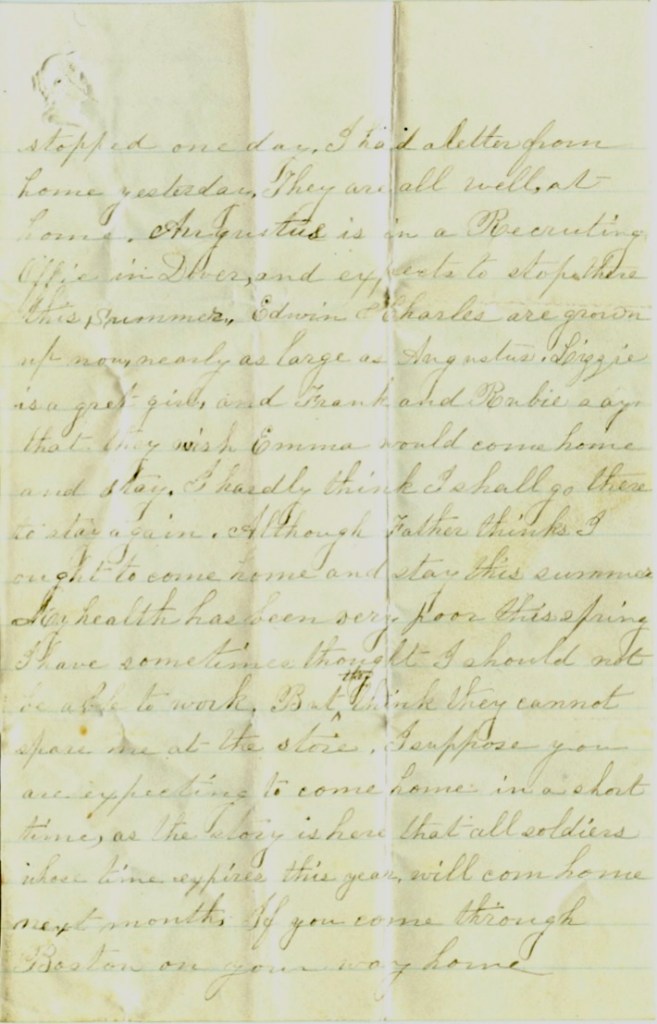 stopped one day. I had a letter from
home yesterday. They are all well, at
home. Augustus is in a Recruiting
Offie in Dover, and expects to stop there
this summer. Edwin & Charles are grown
up now, nearly as large as Augustus. Lizzie
is a gret girl, and Frank and Rubie say
that they wish Emma would come home
and stay. I hardly think I shall go there
to stay again. Although Father thinks I
ought to come home and stay this summer
My health has been very poor this spring
I have sometimes thought I should not
be able to work. But they think they cannot
spare me at the store. I suppose you
are expecting to come home in a short
time, as the story is here that all soldiers
whose time expires this year, will com home
next month. If you come through
Boston on your way home